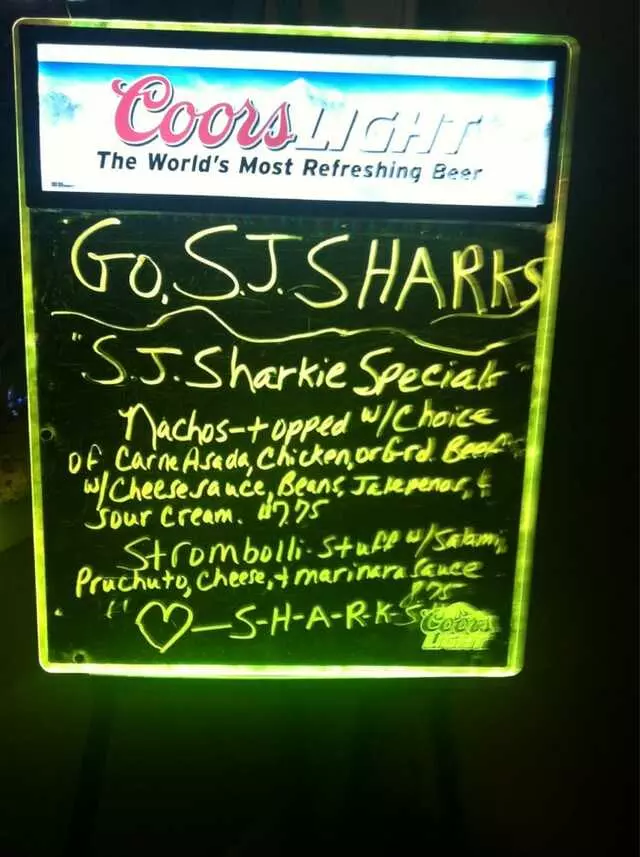 Coors LIGHT
The World's Most Refreshing Beer
GO, S.J. SHARKS
"S.J. Sharkie Specials"
Nachos-topped w/Choice
of Carne Asada, Chicken, or Grd. Beef
w/Cheese sauce, Beans, Jalepenos, &
Sour Cream. $7.75
Strombolli-Stuff w/Salami,
Pruchuto, Cheese, + marinara sauce
"♡-S-H-A-R-K-S
Coors
LIGHT